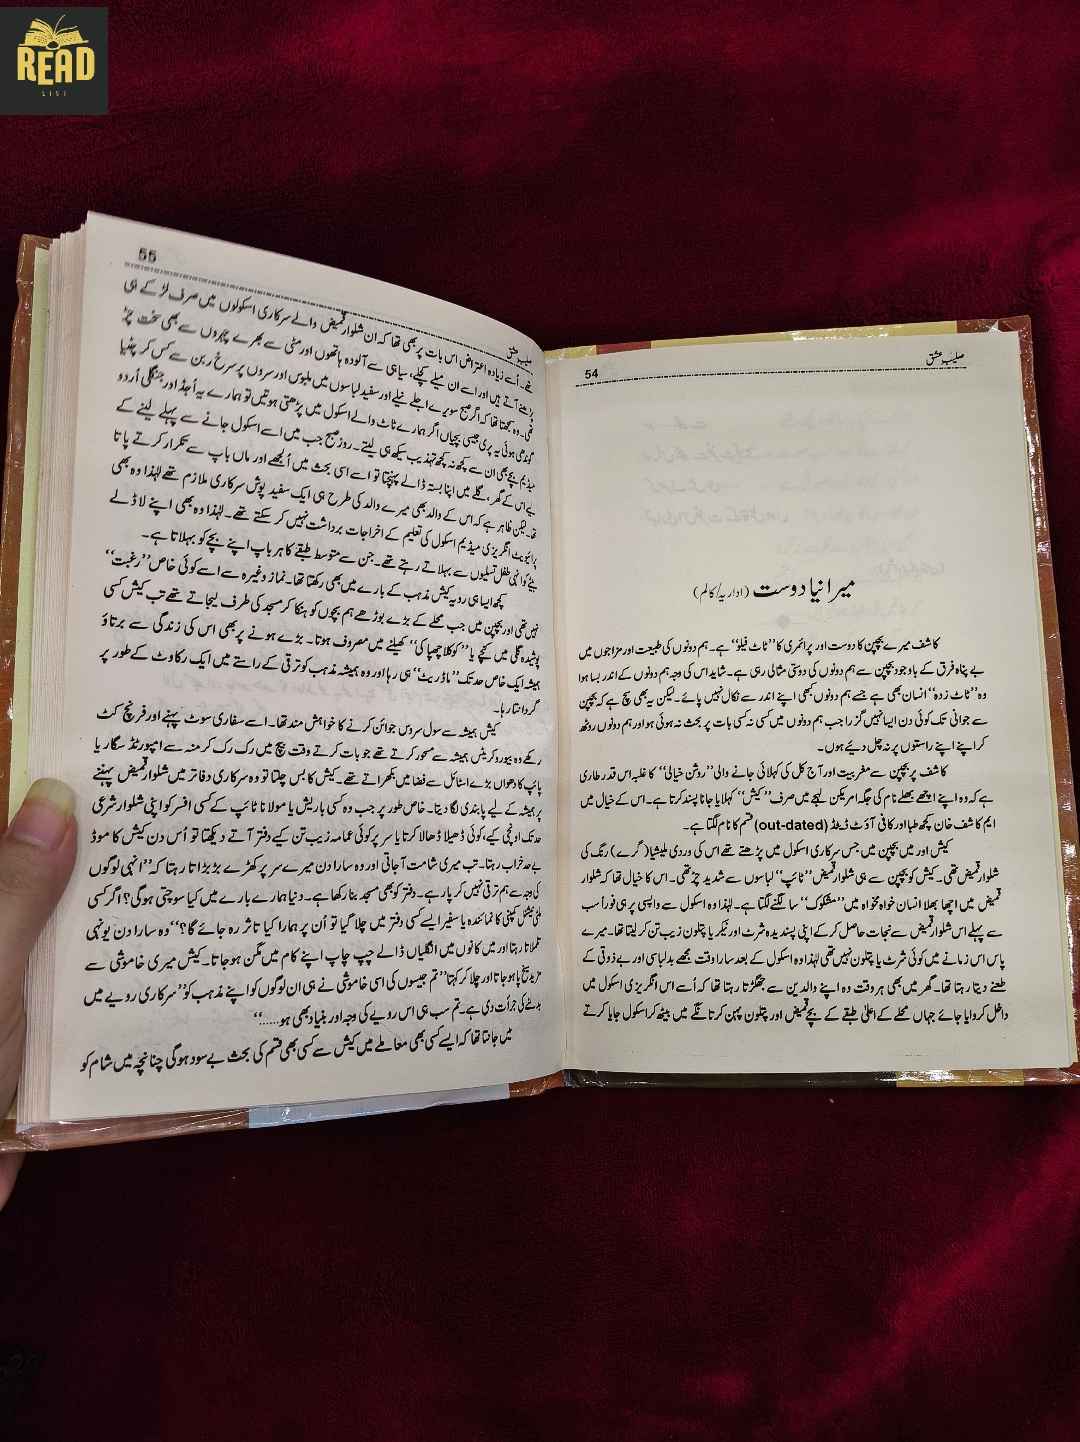 READ
LIST
54
صلیبِ عشق
میرا نیا دوست (اداریہ/کالم)
کاشف میرے بچپن کا دوست اور پرائمری کا ”ٹاٹ فیلو“ ہے۔ ہم دونوں کی طبیعت اور مزاجوں میں
بے پناہ فرق کے باوجود بچپن سے ہم دونوں کی دوستی مثالی رہی ہے۔ شاید اس کی وجہ ہم دونوں کے اندر بسا ہوا
وہ ”ٹاٹ زدہ“ انسان بھی ہے جسے ہم دونوں کبھی اپنے اندر سے نکال نہیں پائے۔ لیکن یہ بھی سچ ہے کہ بچپن
سے جوانی تک کوئی دن ایسا نہیں گزرا جب ہم دونوں میں کسی نہ کسی بات پر بحث نہ ہوئی ہو اور ہم دونوں روٹھ
کر اپنے اپنے راستوں پر نہ چل دیئے ہوں۔
کاشف پر بچپن سے مغربیت اور آج کل کی کہلائی جانے والی ”روشن خیالی“ کا غلبہ اس قدر طاری
ہے کہ وہ اپنے اچھے بھلے نام کی جگہ امریکن لہجے میں صرف ”کیش“ کہلایا جانا پسند کرتا ہے۔ اس کے خیال میں
ایم کاشف خان کچھ ٹھپا اور کافی آؤٹ ڈیٹڈ (out-dated) قسم کا نام لگتا ہے۔
کیش اور میں بچپن میں جس سرکاری اسکول میں پڑھتے تھے اس کی وردی ملیشیا (گرے) رنگ کی
شلوار قمیض تھی۔ کیش کو بچپن سے ہی شلوار قمیض ”ٹائپ“ لباسوں سے شدید چڑ تھی۔ اس کا خیال تھا کہ شلوار
قمیض میں اچھا بھلا انسان خواہ مخواہ میں ”مشکوک“ سا لگنے لگتا ہے۔ لہٰذا وہ اسکول سے واپسی پر ہی فوراً سب
سے پہلے اس شلوار قمیض سے نجات حاصل کر کے اپنی پسندیدہ شرٹ اور نیکر یا پتلون زیب تن کر لیتا تھا۔ میرے
پاس اس زمانے میں کوئی شرٹ یا پتلون نہیں تھی لہٰذا وہ اسکول کے بعد سارا وقت مجھے بدلباسی اور بے ذوقی کے
طعنے دیتا رہتا تھا۔ گھر میں بھی ہر وقت وہ اپنے والدین سے جھگڑتا رہتا تھا کہ اُسے اس انگریزی اسکول میں
داخل کروایا جائے جہاں محلے کے اعلیٰ طبقے کے بچے قمیض اور پتلون پہن کر تانگے میں بیٹھ کر اسکول جایا کرتے
55
صلیبِ عشق
تھے۔ اُسے زیادہ اعتراض اس بات پر بھی تھا کہ ان شلوار قمیض والے سرکاری اسکولوں میں صرف لڑکے ہی
پڑھنے آتے ہیں اور اسے ان میلے کچیلے، سیاہی سے آلودہ ہاتھوں اور مٹی سے بھرے چہروں سے بھی سخت چڑ
تھی۔ وہ سمجھتا تھا کہ اگر صبح سویرے اجلے نیلے اور سفید لباسوں میں ملبوس اور سروں پر سرخ ربن سے کس کر چٹیا
گوندھی ہوئی یہ پری جیسی بچیاں اگر ہمارے ٹاٹ والے اسکول میں پڑھتی ہوتیں تو ہمارے یہ اُجڈ اور جنگلی اُردو
میڈیم بچے بھی ان سے کچھ نہ کچھ تہذیب سیکھ ہی لیتے۔ روز صبح جب میں اسے اسکول جانے سے پہلے لینے کے
لیے اس کے گھر، گلے میں اپنا بستہ ڈالے پہنچتا تو اسے اسی بحث میں اُلجھے اور ماں باپ سے تکرار کرتے پاتا
تھا۔ لیکن ظاہر ہے کہ اس کے والد بھی میرے والد کی طرح ہی ایک سفید پوش سرکاری ملازم تھے لہٰذا وہ بھی
پرائیویٹ انگریزی میڈیم اسکول کی تعلیم کے اخراجات برداشت نہیں کر سکتے تھے۔ لہٰذا وہ بھی اپنے لاڈلے
بیٹے کو انہی طفل تسلیوں سے بہلاتے رہتے تھے۔ جن سے متوسط طبقے کا ہر باپ اپنے بچے کو بہلاتا ہے۔
کچھ ایسا ہی رویہ کیش مذہب کے بارے میں بھی رکھتا تھا۔ نماز وغیرہ سے اسے کوئی خاص ”رغبت“
نہیں تھی اور بچپن میں جب محلے کے بڑے بوڑھے ہم بچوں کو ہنکا کر مسجد کی طرف لیجاتے تھے تب کیش کسی
پوشیدہ گلی میں کنچے یا ”کوکلا چھپاکی“ کھیلنے میں مصروف ہوتا۔ بڑے ہونے پر بھی اس کی زندگی سے برتاؤ
ہمیشہ ایک خاص حد تک ”ماڈریٹ“ ہی رہا اور وہ ہمیشہ مذہب کو ترقی کے راستے میں ایک رکاوٹ کے طور پر
گردانتا رہا۔
کیش ہمیشہ سے سول سروس جوائن کرنے کا خواہش مند تھا۔ اسے سفاری سوٹ پہنے اور فرنچ کٹ
رکھے وہ بیوروکریٹس ہمیشہ سے مسحور کرتے تھے جو بات کرتے وقت بیچ میں رک رک کر منہ سے امپورٹڈ سگار یا
پائپ کا دھواں بڑے اسٹائل سے فضا میں بکھراتے تھے۔ کیش کا بس چلتا تو وہ سرکاری دفاتر میں شلوار قمیض پہننے
پر ہمیشہ کے لیے پابندی لگا دیتا۔ خاص طور پر جب وہ کسی باریش یا مولانا ٹائپ کے کسی افسر کو اپنی شلوار شرعی
حد تک اونچی کیے، کوئی ڈھیلا ڈھالا کرتا یا سر پر کوئی عمامہ زیب تن کیے دفتر آتے دیکھتا تو اُس دن کیش کا موڈ
بے حد خراب رہتا۔ تب میری شامت آ جاتی اور وہ سارا دن میرے سر پر کھڑے بڑبڑاتا رہتا کہ ”انہی لوگوں
کی وجہ سے ہم ترقی نہیں کر پا رہے۔ دفتر کو بھی مسجد بنا رکھا ہے۔ دنیا ہمارے بارے میں کیا سوچتی ہوگی؟ اگر کسی
ملٹی نیشنل کمپنی کا نمائندہ یا سفیر ایسے کسی دفتر میں چلا گیا تو اُن پر ہمارا کیا تاثر رہ جائے گا؟“ وہ سارا دن یونہی
تلملاتا رہتا اور میں کانوں میں انگلیاں ڈالے چپ چاپ اپنے کام میں مگن ہو جاتا۔ کیش میری خاموشی سے
مزید سیخ پا ہو جاتا اور چلا کر کہتا ”تم جیسوں کی اسی خاموشی نے ہی ان لوگوں کو اپنے مذہب کو ”سرکاری رویے میں
بدلنے کی جرأت دی ہے۔ تم سب ہی اس رویے کی وجہ اور بنیاد بھی ہو......“
میں جانتا تھا کہ ایسے کسی بھی معاملے میں کیش سے کسی بھی قسم کی بحث بے سود ہوگی چنانچہ میں شام کو